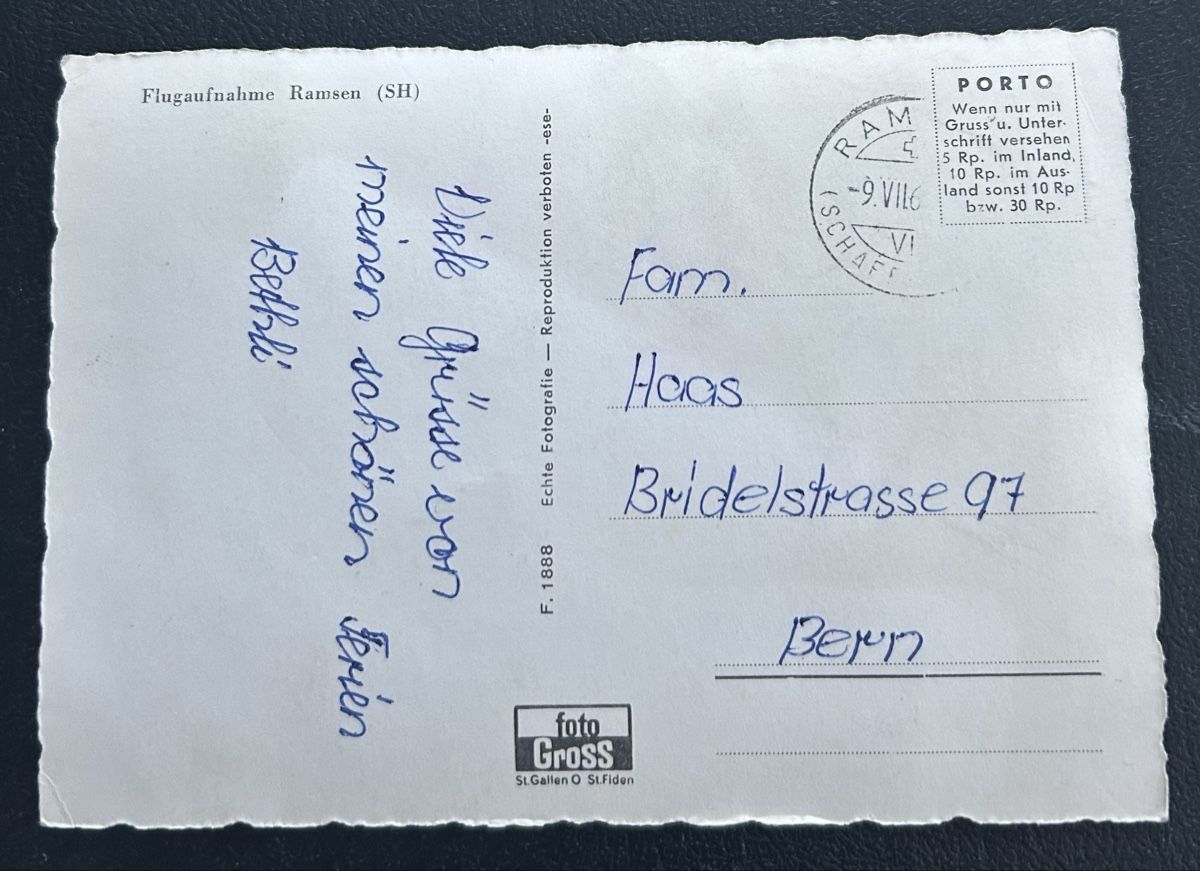 Flugaufnahme Ramsen (SH)
Viele Grüsse von
meinen schönen Ferien
Bethli
F. 1888 Echte Fotografie — Reproduktion verboten -ese-
foto
Gross
St.Gallen O St.Fiden
RAM
-9.VII.6
VI
(SCHAFF
PORTO
Wenn nur mit
Gruss u. Unter-
schrift versehen
5 Rp. im Inland,
10 Rp. im Aus-
land sonst 10 Rp
bzw. 30 Rp.
Fam.
Haas
Bridelstrasse 97
Bern